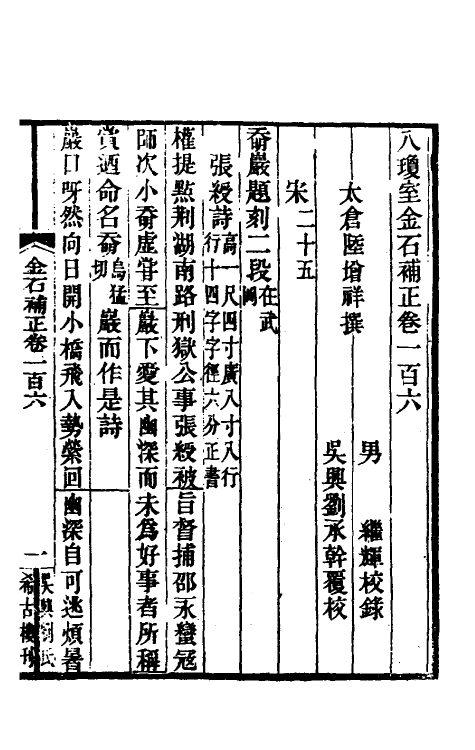 八瓊室金石補正卷一百六
太倉陸增祥撰
男　繼輝校錄
吳興劉承幹覆校
宋二十五
奣巖題刻二段在武岡
張綬詩高一尺四寸廣八寸八行行十四字字徑六分正書
權提㸃荆湖南路刑獄公事張綬被旨督捕邵永蠻冦
師次小奣虛嘗至巖下愛其幽深而未爲好事者所稱
賞迺命名奣烏猛切巖而作是詩
巖口呀然向日開小橋飛入勢縈回幽深自可逃煩暑
金石補正卷一百六
一
吳興劉氏
希古樓刊